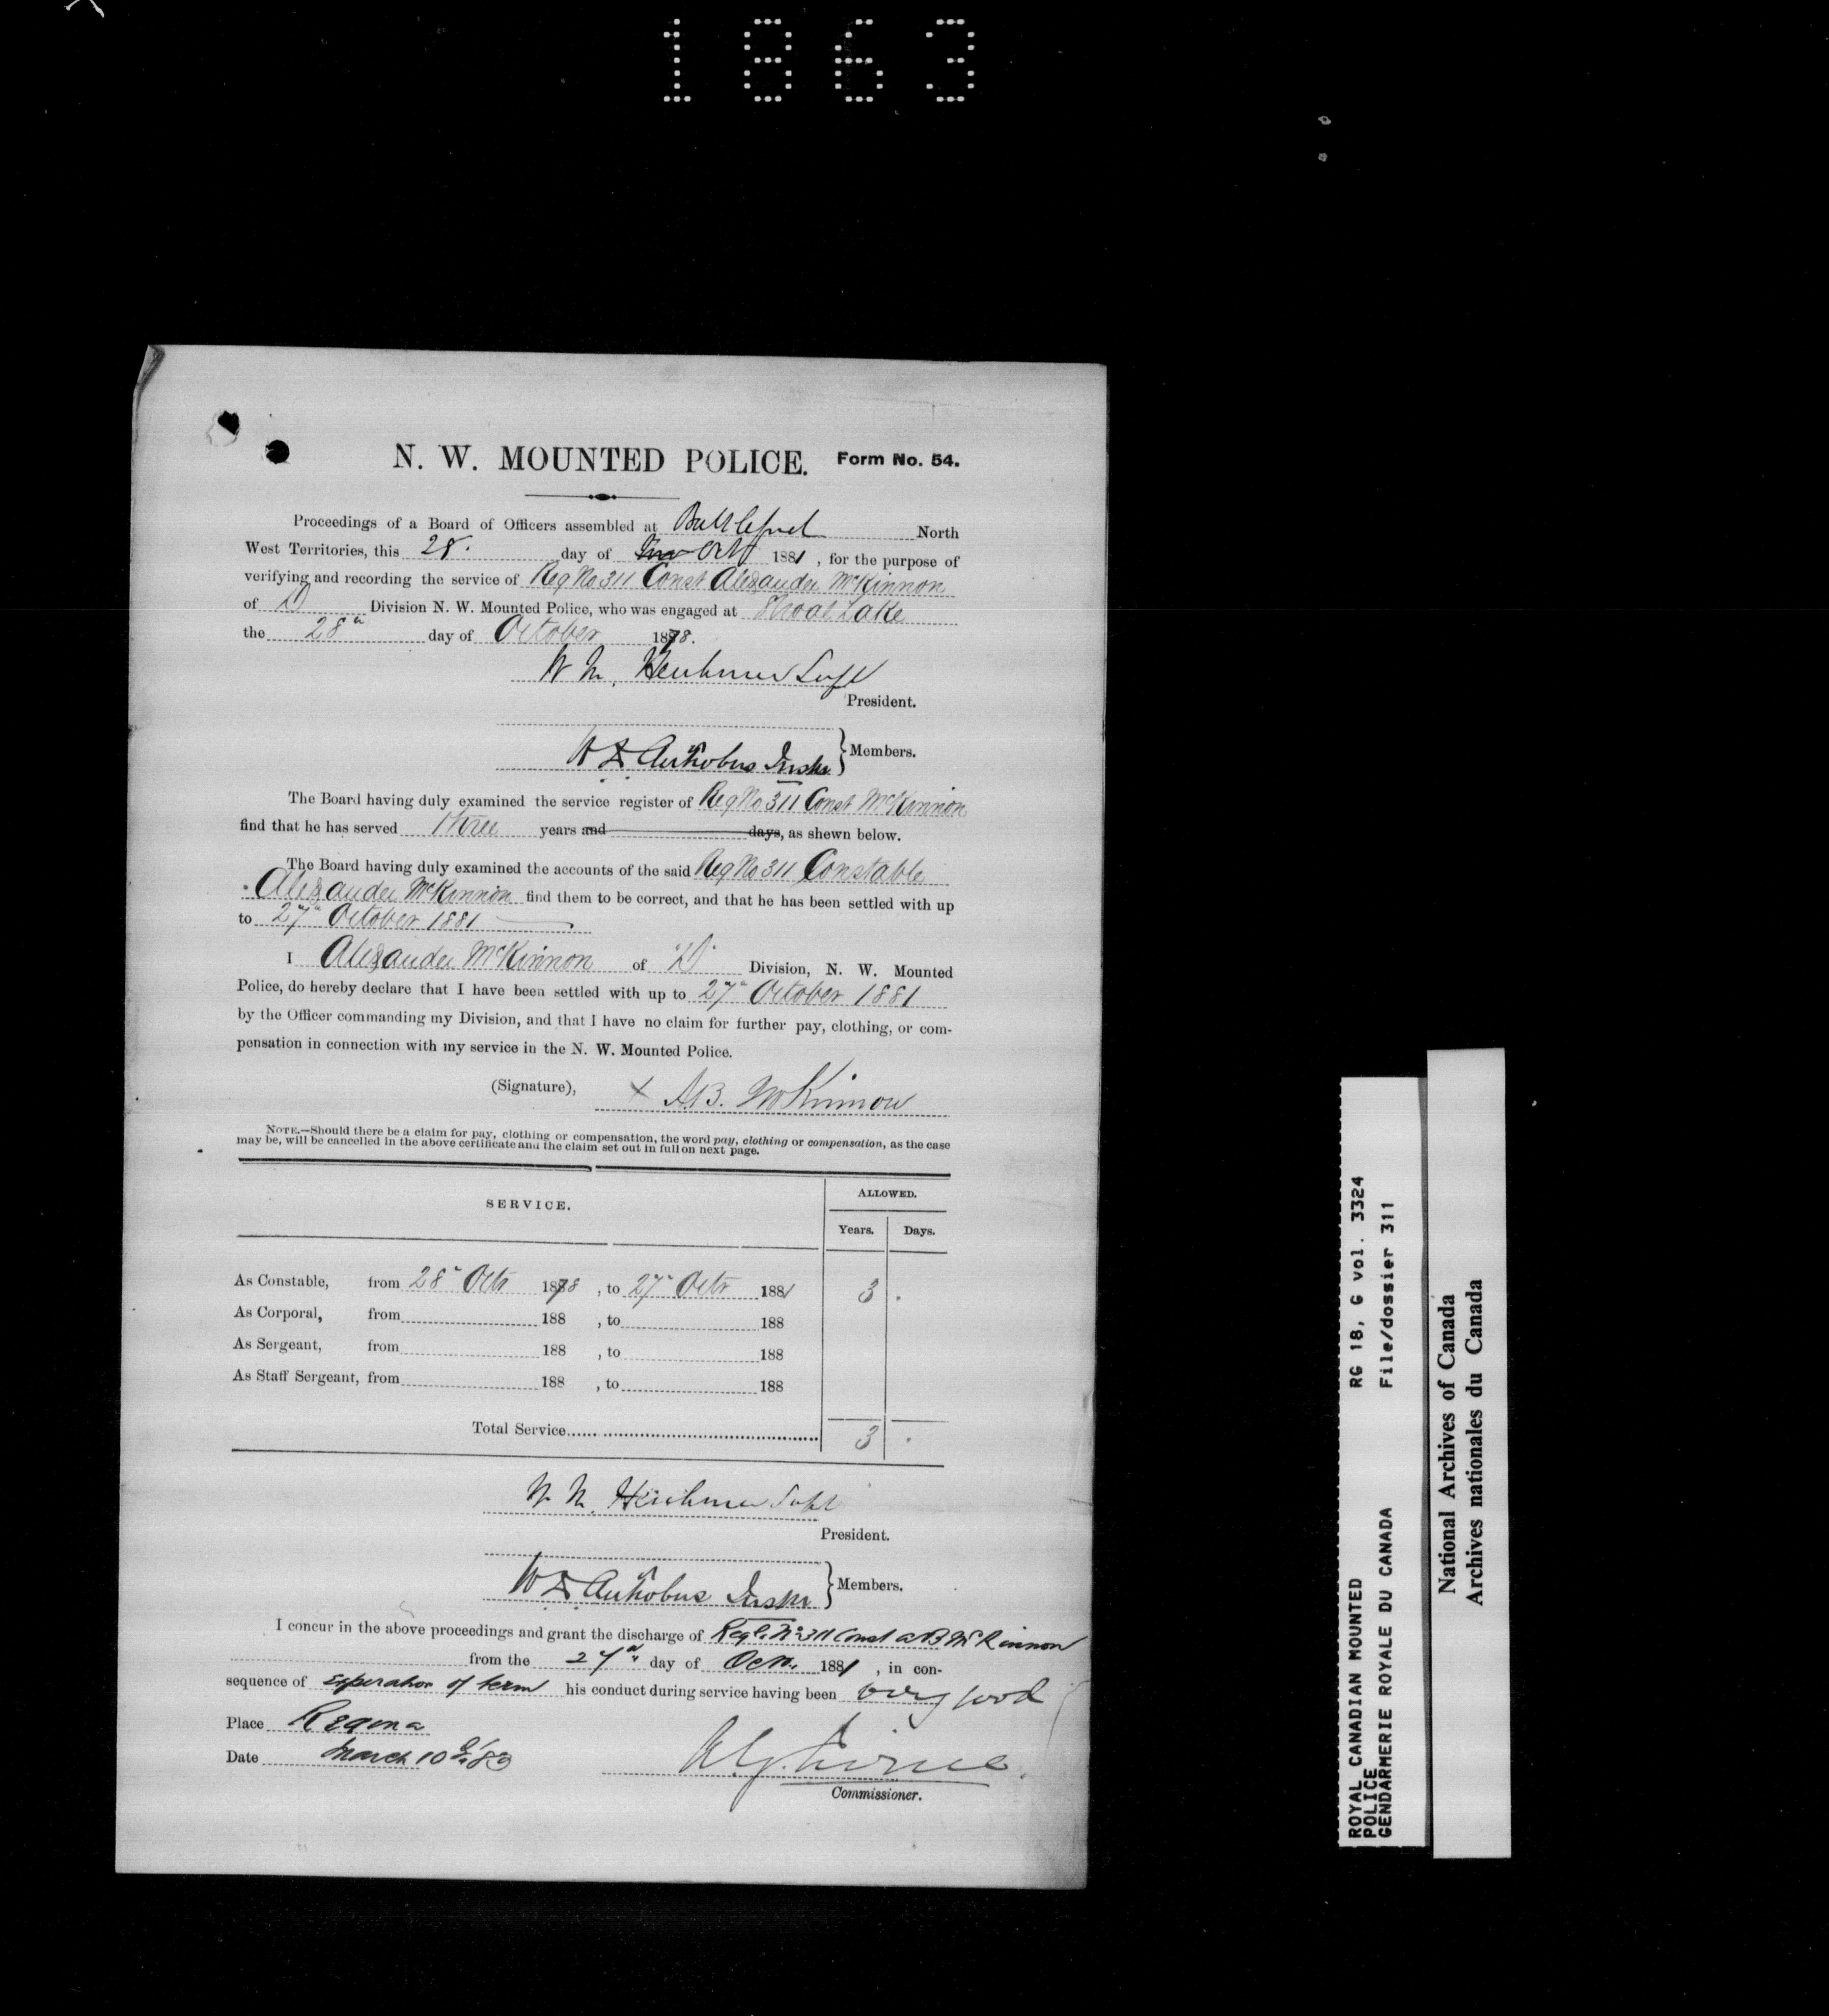 1863
N. W. MOUNTED POLICE. Form No. 54.
Proceedings of a Board of Officers assembled at Battleford North
West Territories, this 28. day of Oct 1881, for the purpose of
verifying and recording the service of Reg No 311 Const Alexander McKinnon
of "D" Division N. W. Mounted Police, who was engaged at Shoal Lake
the 28th day of October 1878.
W M. Herchmer Supt
President.
W D Antrobus Inspr
Members.
The Board having duly examined the service register of Reg No 311 Const McKinnon
find that he has served Three years and days, as shewn below.
The Board having duly examined the accounts of the said Reg No 311 Constable
Alexander McKinnon find them to be correct, and that he has been settled with up
to 27th October 1881
I Alexander McKinnon of "D" Division, N. W. Mounted
Police, do hereby declare that I have been settled with up to 27th October 1881
by the Officer commanding my Division, and that I have no claim for further pay, clothing, or com-
pensation in connection with my service in the N. W. Mounted Police.
(Signature), x AB. McKinnon
NOTE.—Should there be a claim for pay, clothing or compensation, the word pay, clothing or compensation, as the case
may be, will be cancelled in the above certificate and the claim set out in full on next page.
SERVICE. ALLOWED.
Years. Days.
As Constable, from 28" Octr 1878, to 27" Octr 1881 3 .
As Corporal, from 188 , to 188
As Sergeant, from 188 , to 188
As Staff Sergeant, from 188 , to 188
Total Service 3 .
W M. Herchmer Supt
President.
W D Antrobus Inspr
Members.
I concur in the above proceedings and grant the discharge of Regl. No 311 Const A B McKinnon
from the 27th day of Octr. 1881, in con-
sequence of expiration of term his conduct during service having been very good
Place Regina
Date March 10th/83
A.G. Irvine
Commissioner.
ROYAL CANADIAN MOUNTED RG 18, G vol. 3324
POLICE
GENDARMERIE ROYALE DU CANADA File/dossier 311
National Archives of Canada
Archives nationales du Canada